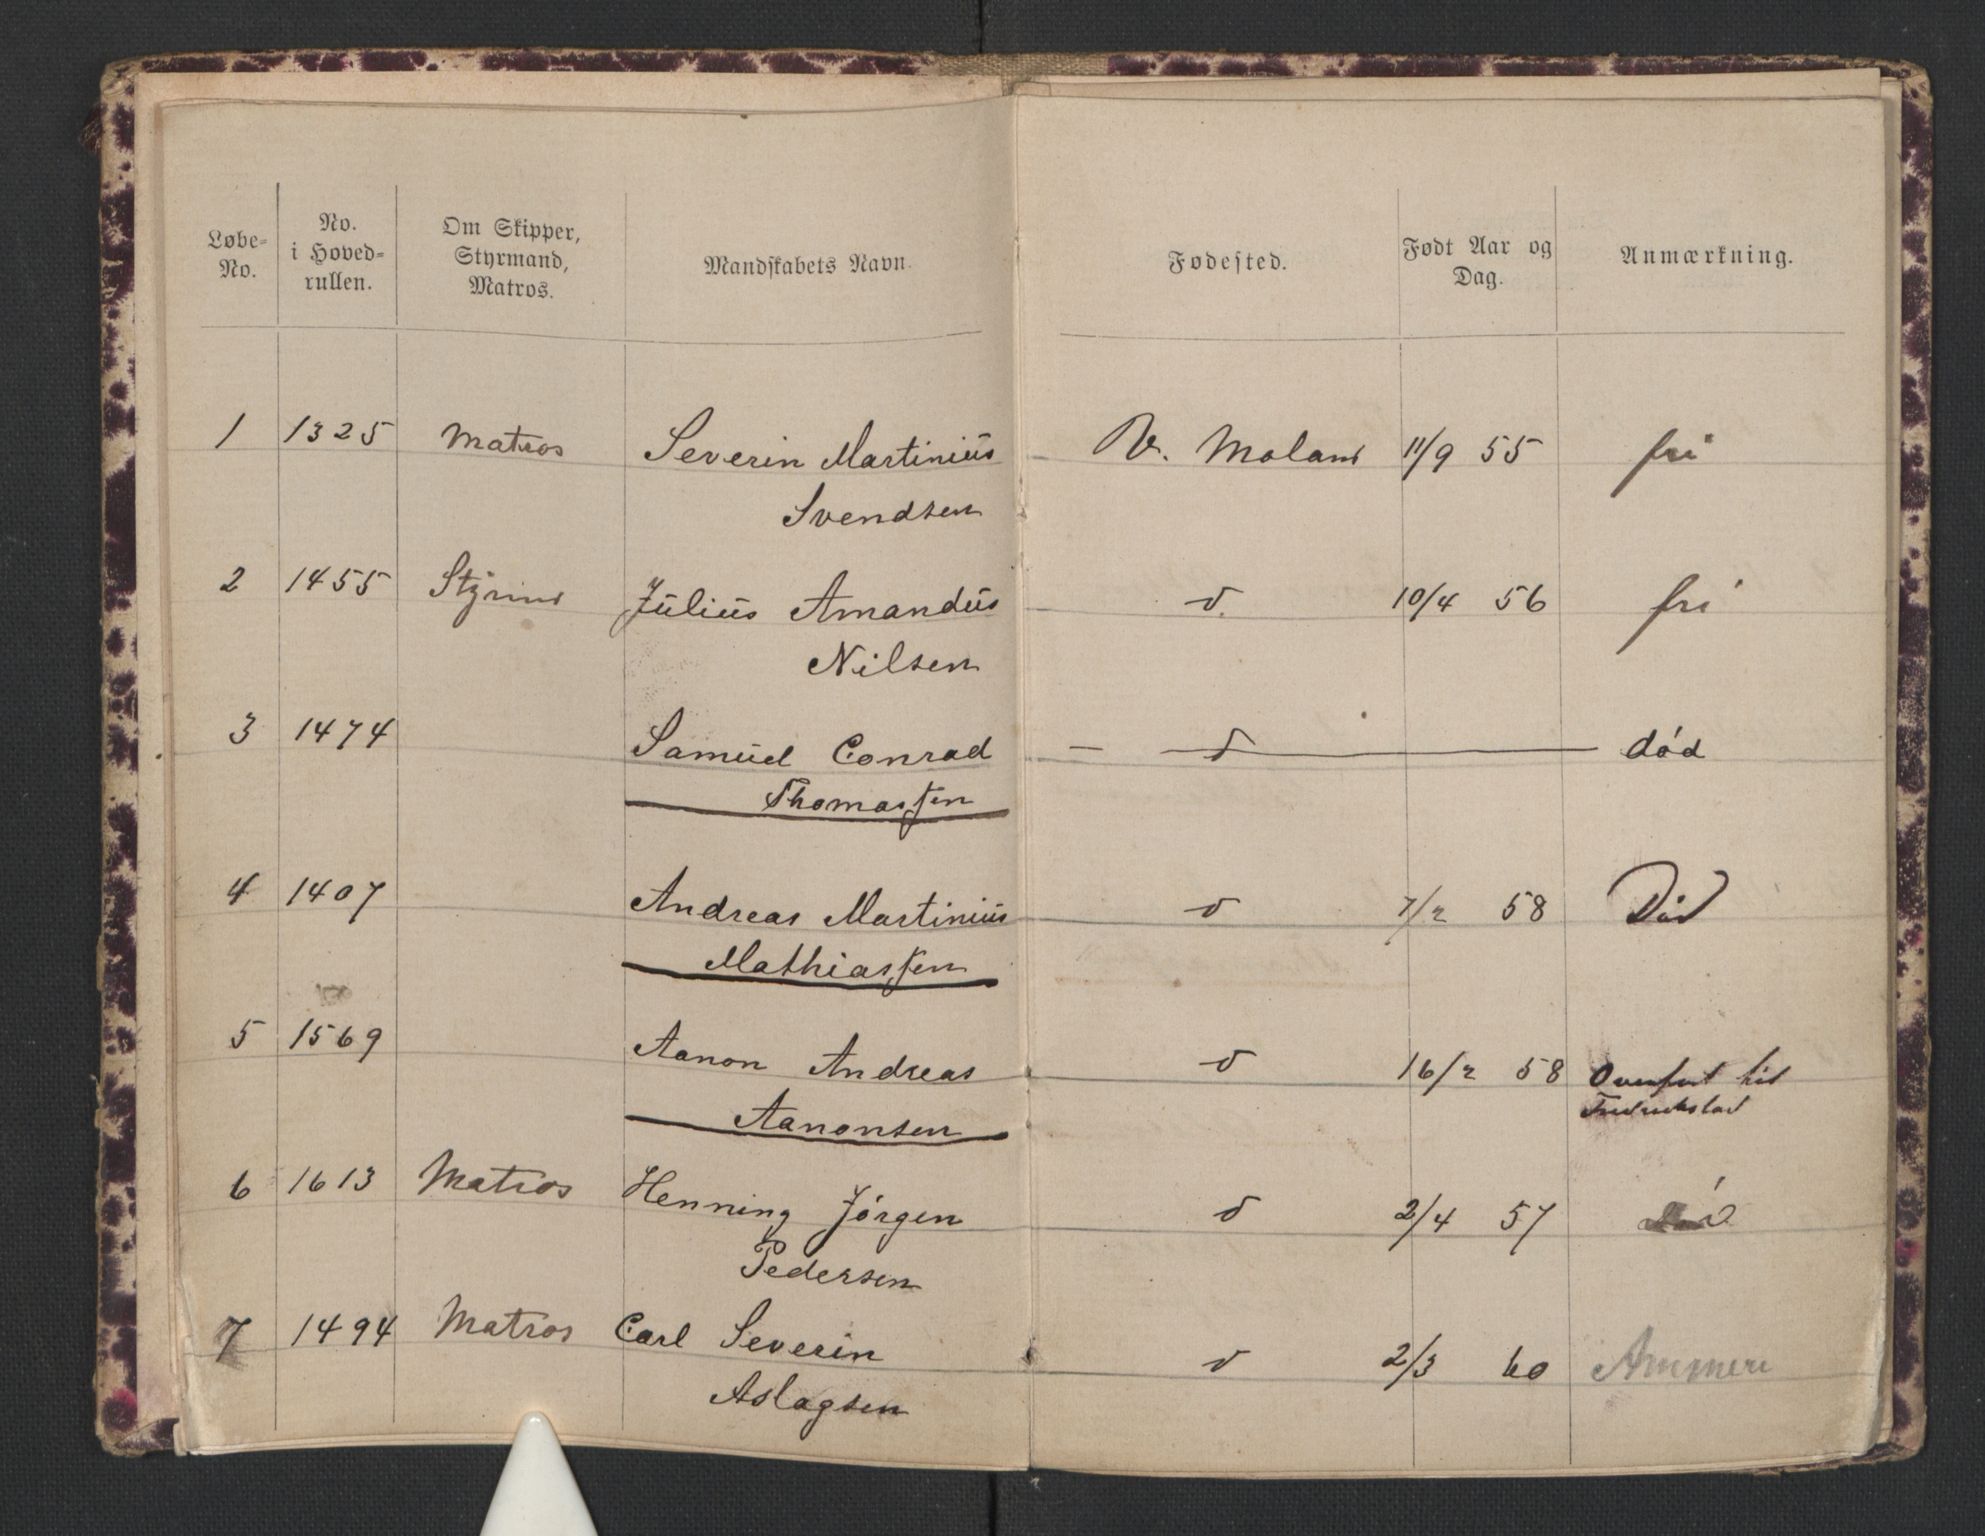 Løbe-No. No. i Hoved-rullen. Om Skipper, Styrmand, Matros. Mandskabets Navn. Fødested. Født Aar og Dag. Anmærkning.
1 1325 Matros Severin Martinius V. Moland 11/9 55 fri
Svendsen
2 1455 Styrmd Julius Amandus d. 10/4 56 fri
Nilsen
3 1474 Samuel Conrad — d — død
Thomassen
4 1407 Andreas Martinius d 7/2 58 Død
Mathiassen
5 1569 Aanon Andreas d 16/2 58 Overført til
Aanonsen Fredrikstad
6 1613 Matros Henning Jørgen d 2/4 57
Pedersen
7 1494 Matros Carl Severin d 2/3 60
Aslagsen